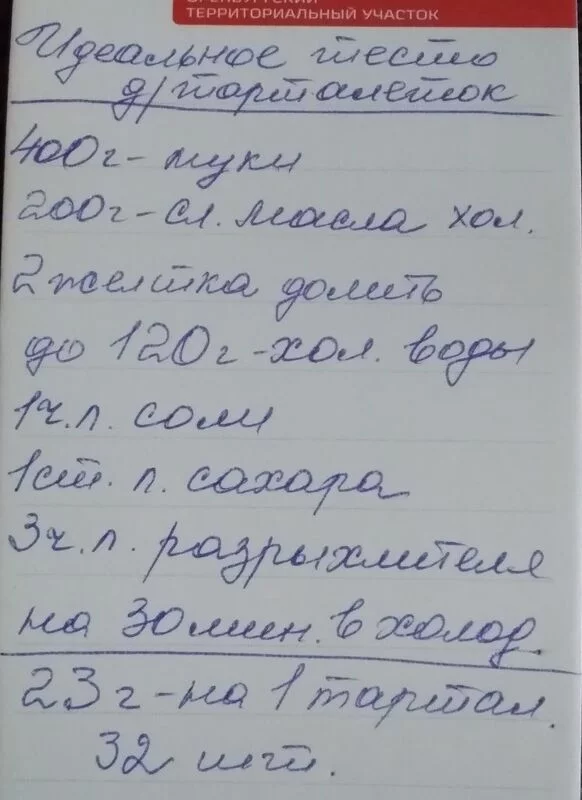 ОРЕНБУРГСКИЙ
ТЕРРИТОРИАЛЬНЫЙ УЧАСТОК
Идеальное тесто
д/тарталеток
400г - муки
200г - сл. масла хол.
2 желтка долить
до 120г - хол. воды
1ч.л. соли
1ст. л. сахара
3ч.л. разрыхлителя
на 30 мин. в холод.
23г - на 1 тартал.
32 шт.